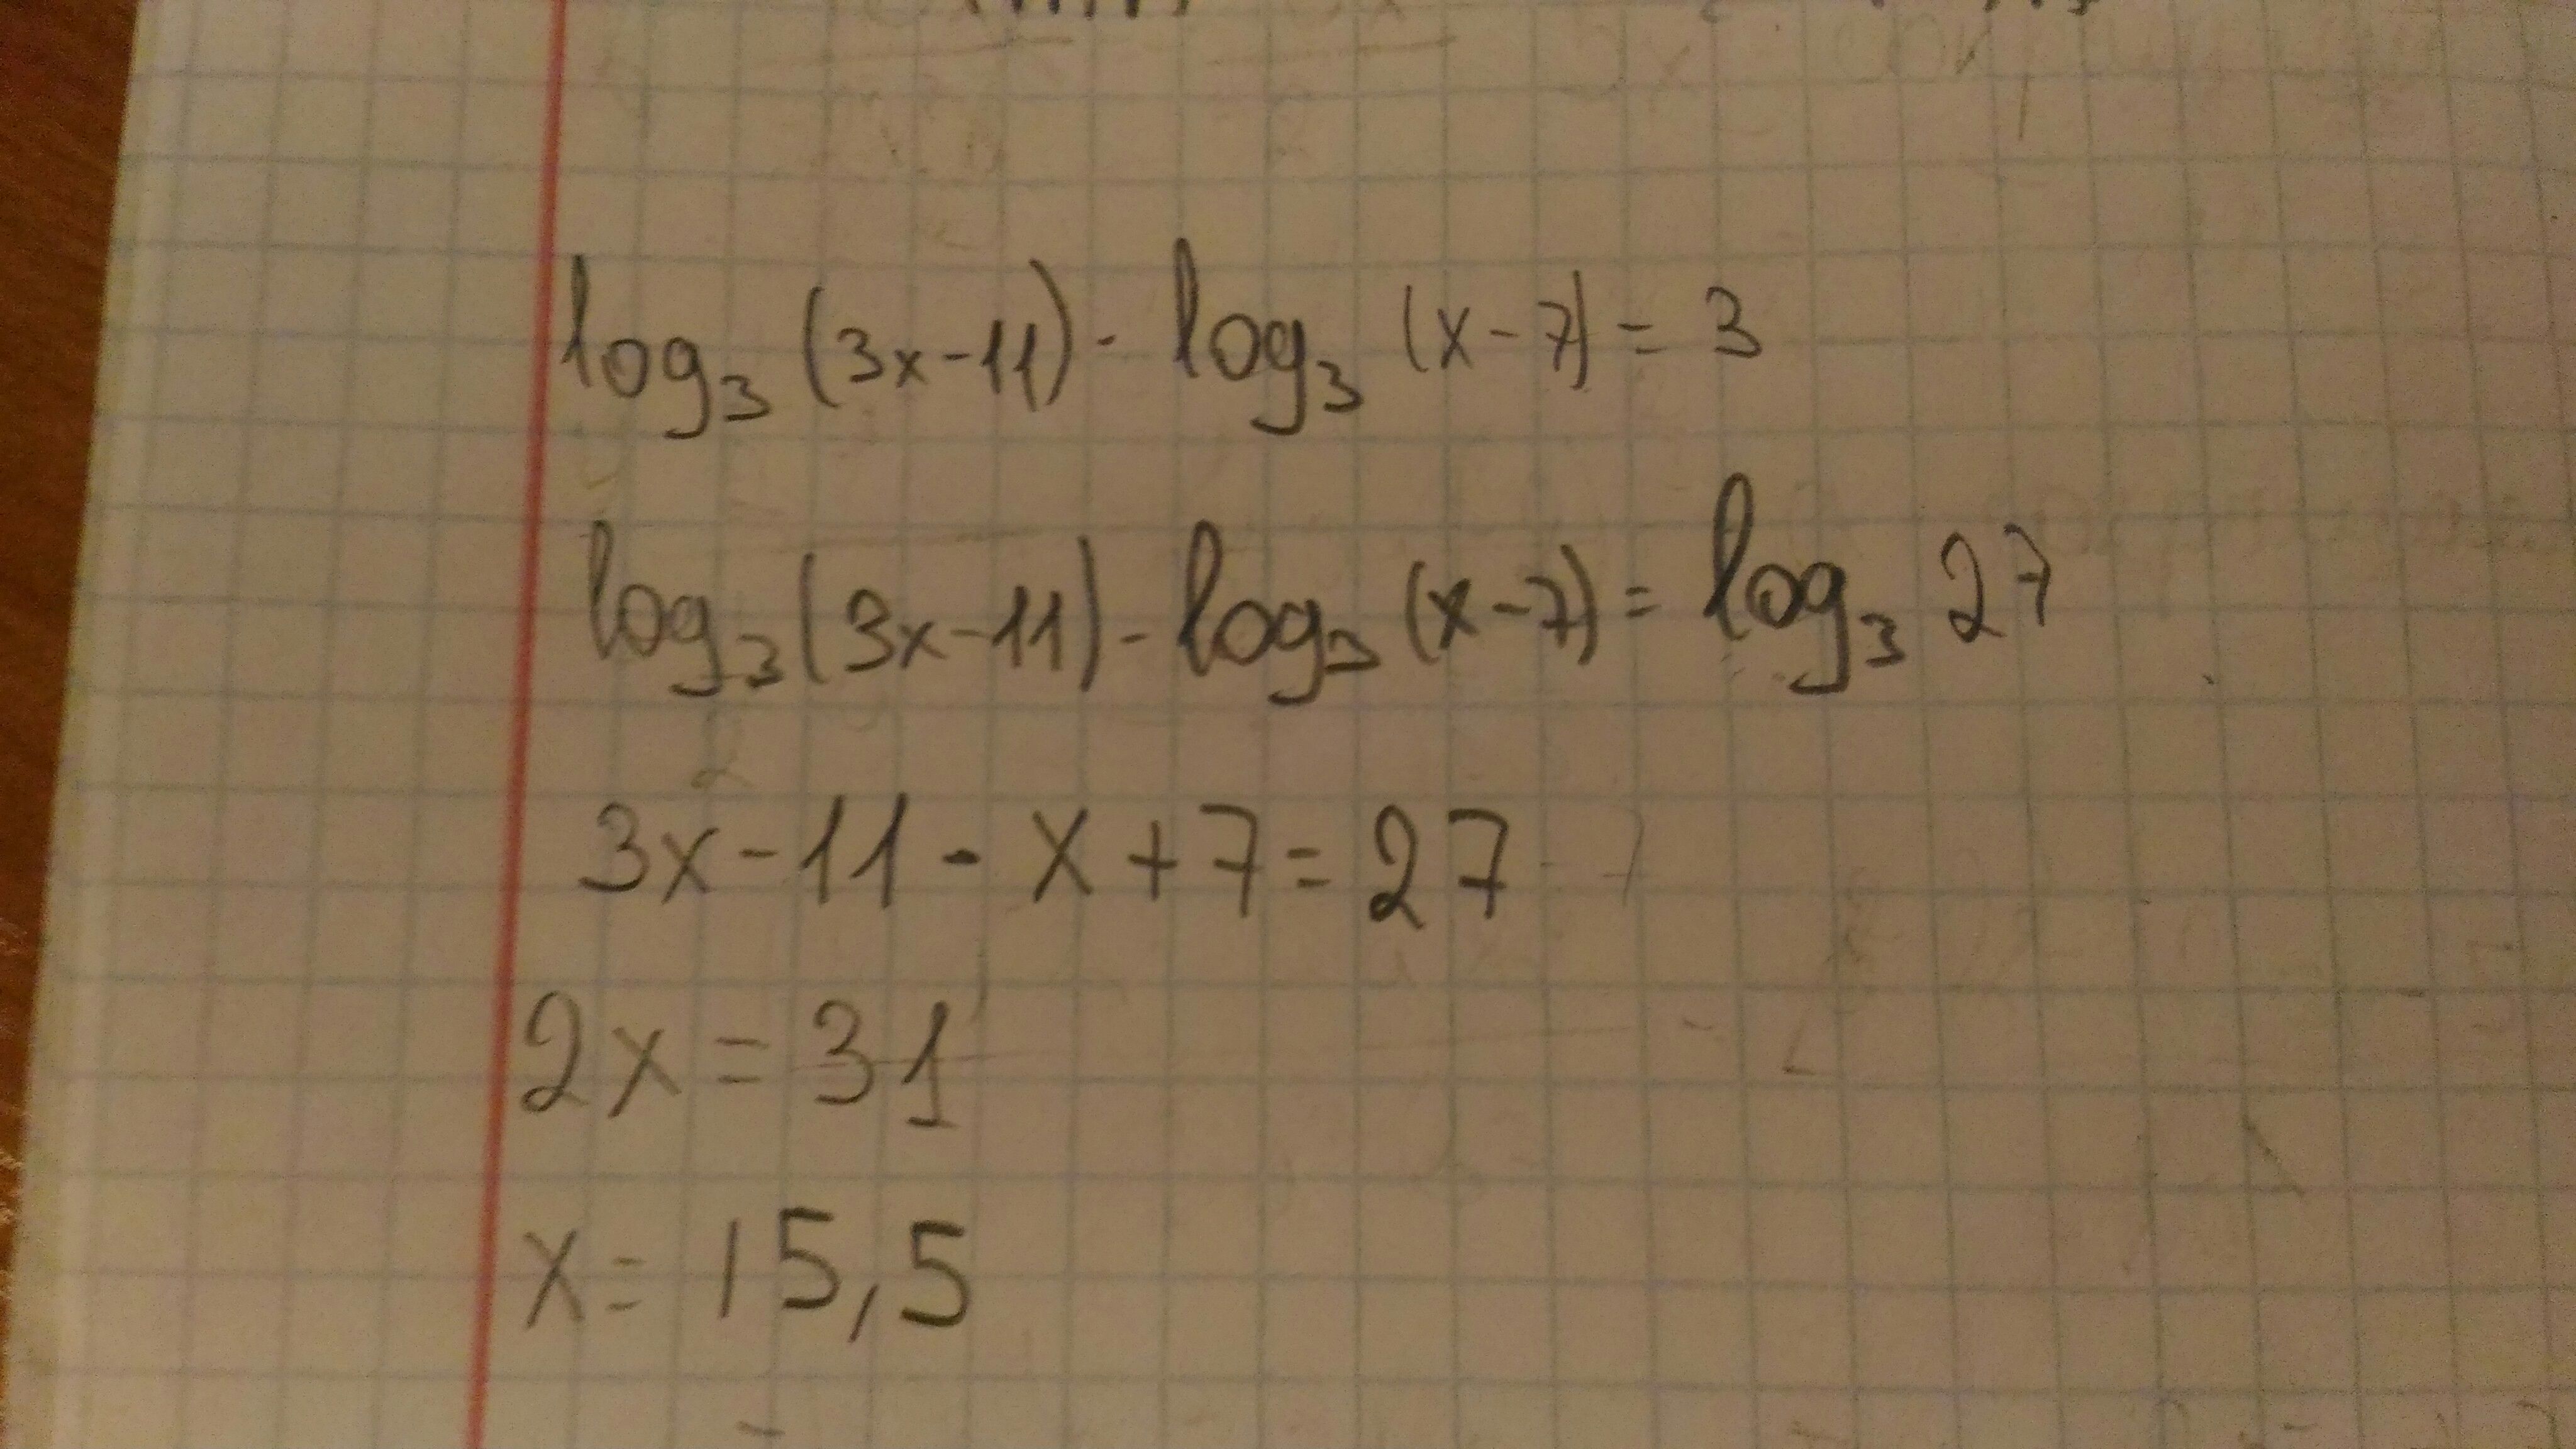 log₃ (3x-11) - log₃ (x-7) = 3
log₃(3x-11) - log₃ (x-7) = log₃ 27
3x-11 - x+7 = 27
2x = 31
x = 15,5